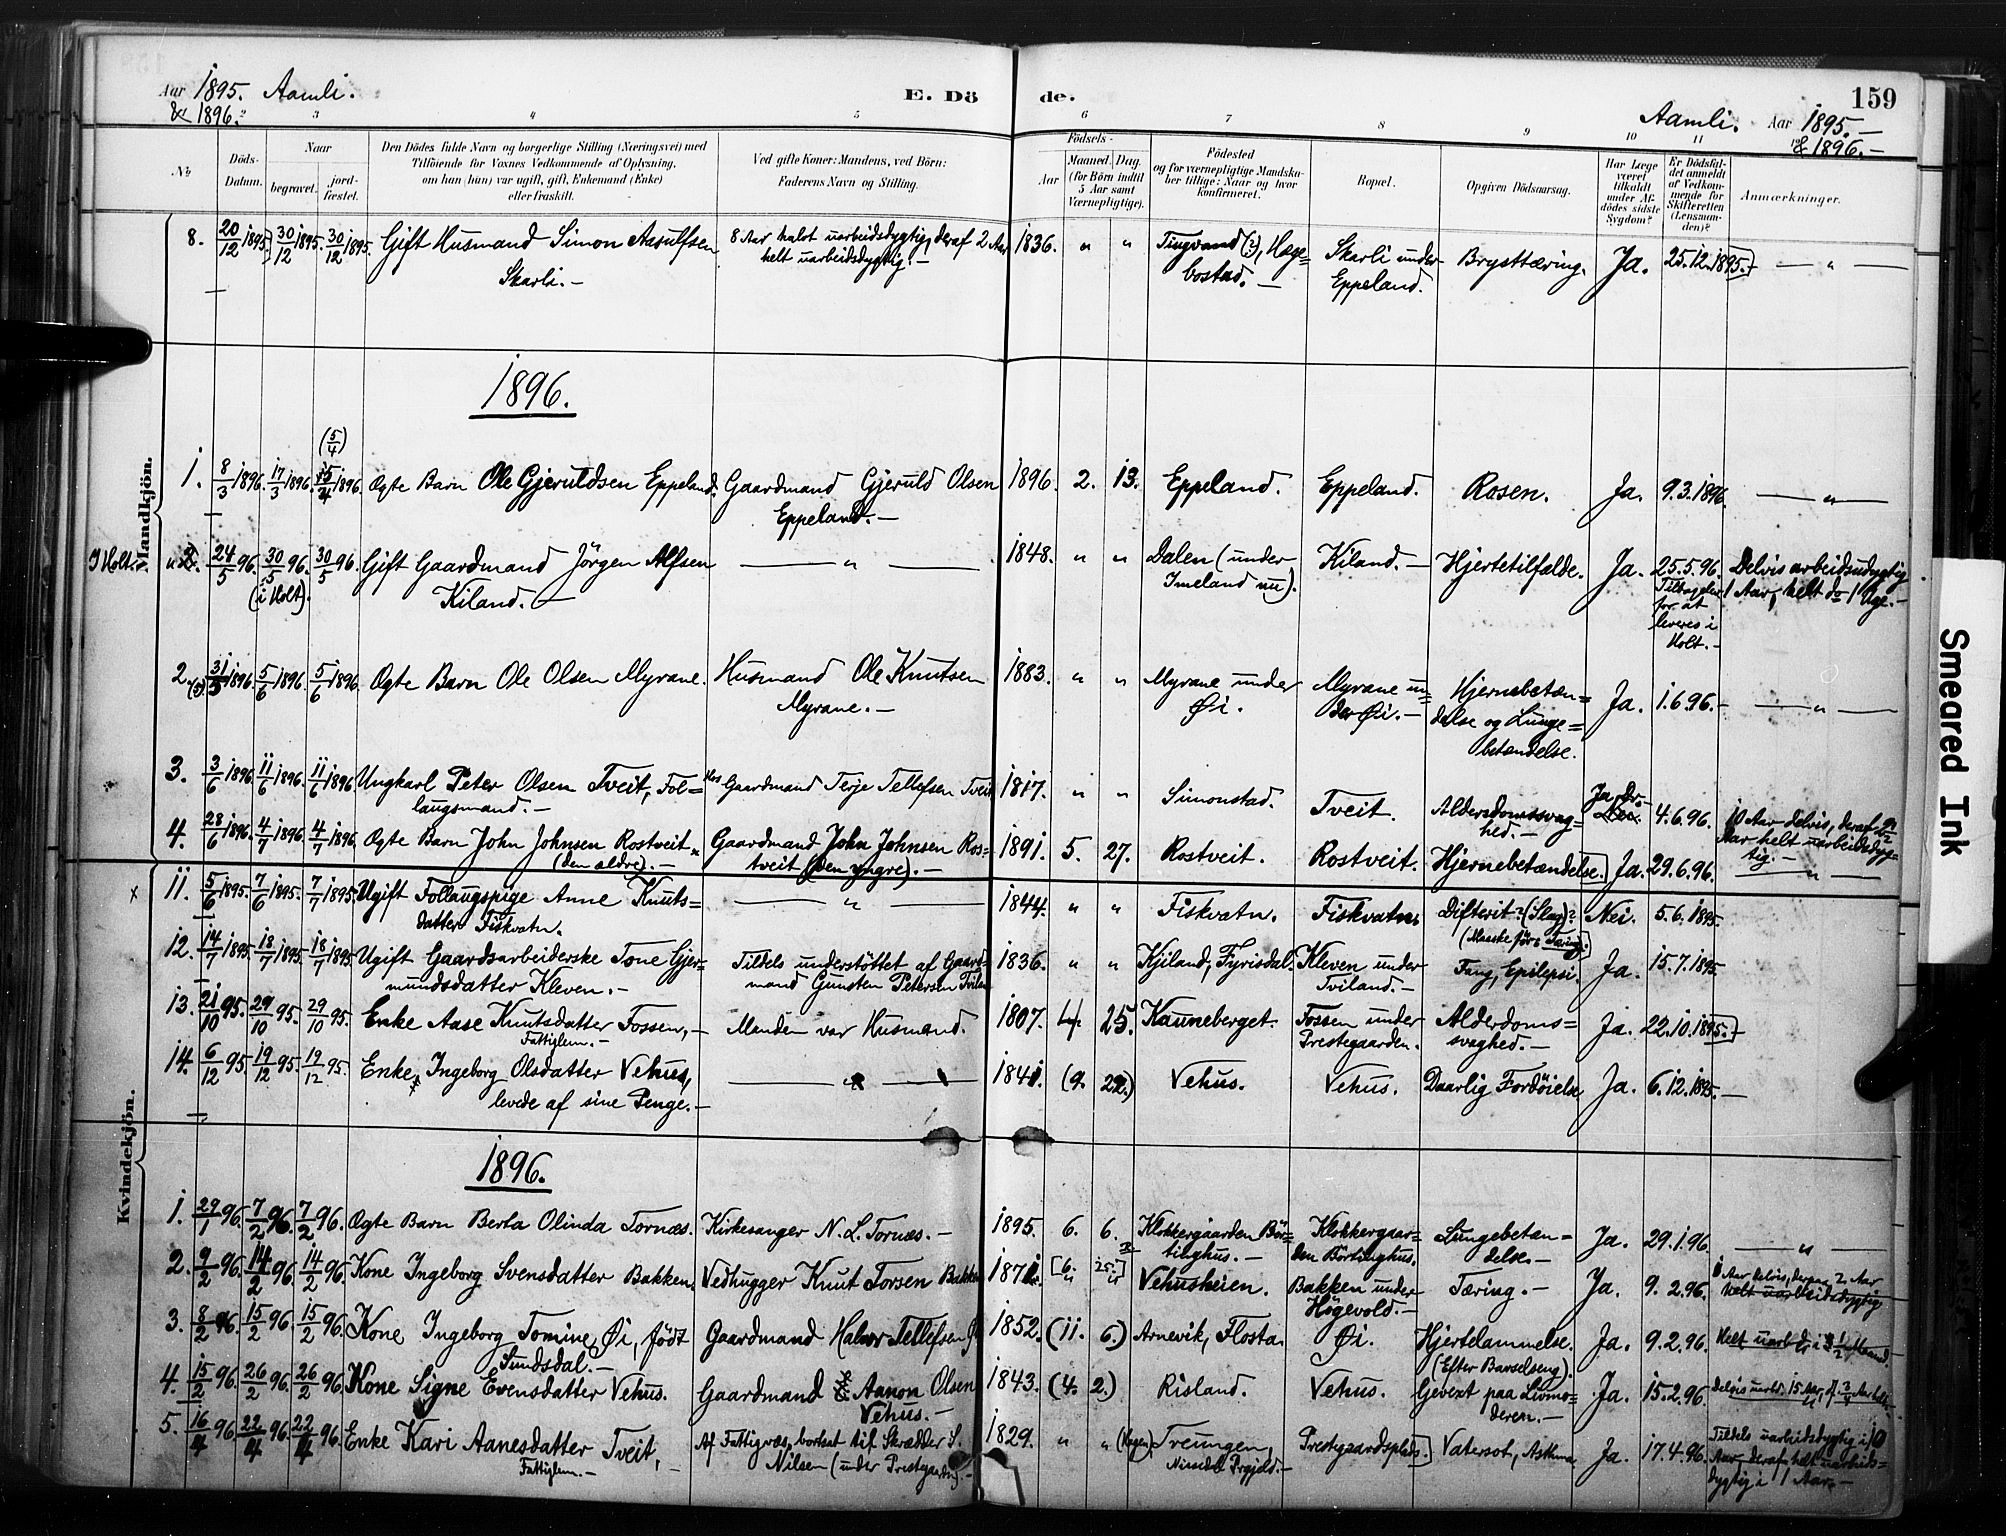 Aar 1895. Aamli.
& 1896.
E. Dö de.
Aamli. Aar 1895.—
& 1896.—
159
2 3 4 5 6 7 8 9 10 11
№
Döds-Datum.
Naar
begravet.
jord-fæstet.
Den Dödes fulde Navn og borgerlige Stilling (Næringsvei) med
Tilföiende for Voxnes Vedkommende af Oplysning,
om han (hun) var ugift, gift, Enkemand (Enke)
eller fraskilt.
Ved gifte Koner: Mandens, ved Börn:
Faderens Navn og Stilling.
Födsels-
Aar
Maaned. Dag.
(for Börn indtil
5 Aar samt
Værnepligtige).
Födested
og for værnepligtige Mandska-
ber tillige: Naar og hvor
konfirmeret.
Bopæl.
Opgiven Dödsaarsag.
Har Læge
været
tilkaldt
under Af-
dödes sidste
Sygdom?
Er Dödsfal-
det anmeldt
af Vedkom-
mende for
Skifteretten
(Lensman-
den)?
Anmærkninger.
Mandkjön.
8. 20/12 1895. 30/12 1895. 30/12 1895. Gift Husmand Simon Aasulfsen 8 Aar halvt uarbeidsdygtig, deraf 2 Aar 1836. " " Tingvand (?), Hæge= Skarli under Brysttæring. Ja. 25.12.1895. — " —
Skarli.— helt uarbeidsdygtig.— bostad.— Eppeland.
1896.
(5/4)
1. 8/3 1896. 17/3 1896. 15/4 1896. Ægte Barn Ole Gjeruldsen Eppeland. Gaardmand Gjeruld Olsen 1896. 2. 13. Eppeland. Eppeland. Rosen. Ja. 9.3.1896. — " —
Eppeland.—
I Holt. " 2. 24/5 96. 30/5 96. 30/5 96. Gift Gaardmand Jörgen Alfsen — " — 1848. " " Dalen (under Kiland.— Hjertetilfælde. Ja. 25.5.96. Delvis arbeidsudygtig
(i Holt). Kiland.— Imeland nu). Tiltagelse 1 Aar, helt do 1 Uge.—
for at
leveres i
Holt.—
2. (3) 31/5 1896. 5/6 1896. 5/6 1896. Ægte Barn Ole Olsen Myrane. Husmand Ole Knutsen 1883. " " Myrane under Myrane un= Hjernebetæn= Ja. 1.6.96.— — " —
Myrane.— Øi. der Øi.— delse og Lunge=
betændelse.
3. 3/6 1896. 11/6 1896. 11/6 1896. Ungkarl Peter Olsen Tveit, Fol= Hos Gaardmand Terje Tellefsen Tveit 1817. " " Simonstad. Tveit. Aldersdomssvag= Ja, Dr. 4.6.96. 10 Aar delvis, deraf 2
laugsmand.— hed.— Nei. Aar helt uarbeidsdyg=
tig.—
4. 28/6 1896. 4/7 1896. 4/7 1896. Ægte Barn John Johnsen Rostveit Gaardmand John Johnsen Ros= 1891. 5. 27. Rostveit. Rostveit. Hjernebetændelse. Ja. 29.6.96. — " —
(den ældre).— tveit (den yngre).—
Kvindekjön.
x 11. 5/6 1895. 7/6 1895. 7/7 1895. Ugift Follaugspige Anne Knuts= — " — 1844. " " Fiskvatn. Fiskvatn. Difterit? (Slag)? Nei. 5.6.1895.
datter Fiskvatn. (Maaske för: Tæring).
12. 14/7 1895. 18/7 1895. 18/7 1895. Ugift Gaardsarbeiderske Tone Gjer= Tildels understöttet af Gaard= 1836. " " Kjiland, Fyrisdal. Kleven under Fang, Epilepsi. Ja. 15.7.1895.
mundsdatter Kleven.— mand Gunsten Petersen Tvilan Tviland.—
13. 21/10 95. 29/10 95. 29/10 95. Enke Aase Knutsdatter Fossen,— Manden var Husmand. 1807. 4. 25. Kauneberget. Fossen under Alderdoms= Ja. 22.10.1895.
Fattiglem.— Prestegaarden. svaghed.—
14. 6/12 95. 19/12 95. 19/12 95. Enke, Ingeborg Olsdatter Vehus, — " — 1841. (9. 22.) Vehus. Vehus. Daarlig Fordöielse Ja. 6.12.1895.—
levede af sine Penge.—
1896.
1. 29/1 96. 7/2 96. 7/2 96. Ægte Barn Berta Olinda Tornæs. Kirkesanger N. L. Tornæs.— 1895. 6. 6. Klokkergaarden Bör= Klokkergaar= Lungebetæn= Ja. 29.1.96. — " —
tinghus.— den Börtinghus. delse.—
2. 9/2 96. 14/2 96. 14/2 96. Kone Ingeborg Svensdatter Bakken. Vedhugger Knut Torsen Bakken 1871. [6. 25.] Vehusheien. Bakken under Tæring.— Ja. 9.2.96. Aar delvis, derpaa 2 Aar
Högevold.— helt uarbeidsdygtig
3. 8/2 96. 15/2 96. 15/2 96. Kone Ingeborg Tomine Øi, född Gaardmand Halvor Tellefsen Øi 1852. (11. 6.) Arnevik, Flosta. Øi. Hjertelammelse. Ja. 9.2.96. Helt uarb.
Sundsdal.— (Efter Barselseng).
4. 15/2 96. 26/2 96. 26/2 96. Kone Signe Evensdatter Vehus. Gaardmand Aanon Olsen 1843. (4. 2.) Risland. Vehus. Gevext paa Livmo= Ja. 15.2.96. Delvis uarbd. 15 Aar,
Vehus.— deren.—
5. 16/4 96. 22/4 96. 22/4 96. Enke Kari Aanesdatter Tveit,— Af Fattigvæs. bortsat til Skrædder S. 1829. " " Treungen, Prestgaardsplads. Vatersot, Astma. Ja. 17.4.96. Tildels uarbeidsdygtig i 10
Fattiglem.— Nilsen (under Prestgaarden).— Nissedal Prgjeld.— Aar, deraf helt uarbeids=
dygtig i 1 Aar.—
Smeared Ink